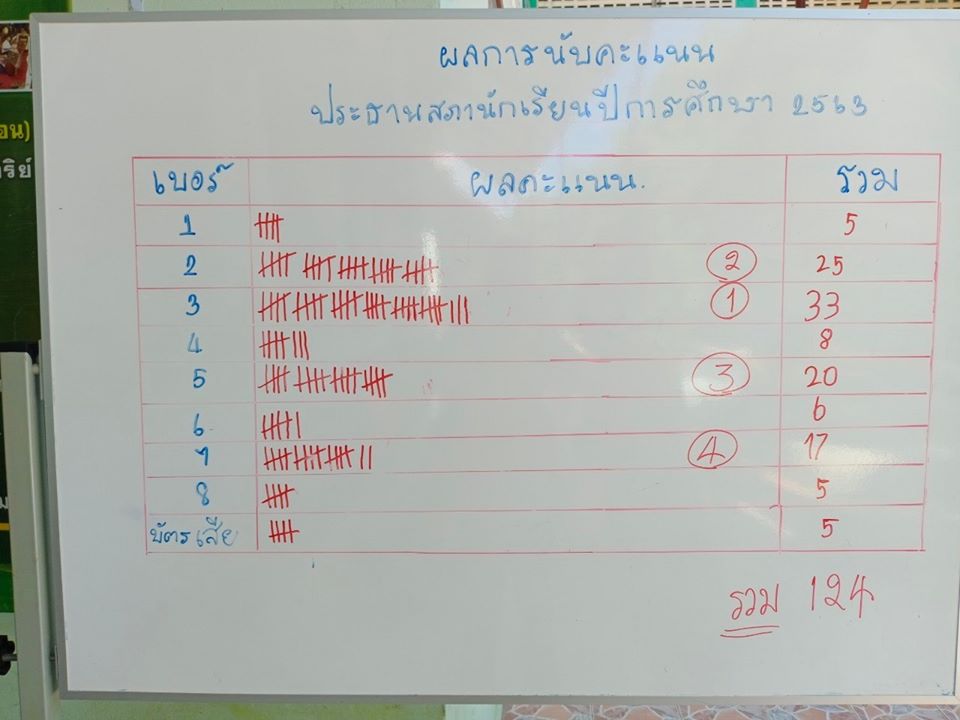 ผลการนับคะแนน
ประธานสภานักเรียนปีการศึกษา 2563
เบอร์ ผลคะแนน. รวม
1 5
2 2 25
3 1 33
4 8
5 3 20
6 6
7 4 17
8 5
บัตรเสีย 5
รวม 124
อน)
ริย์